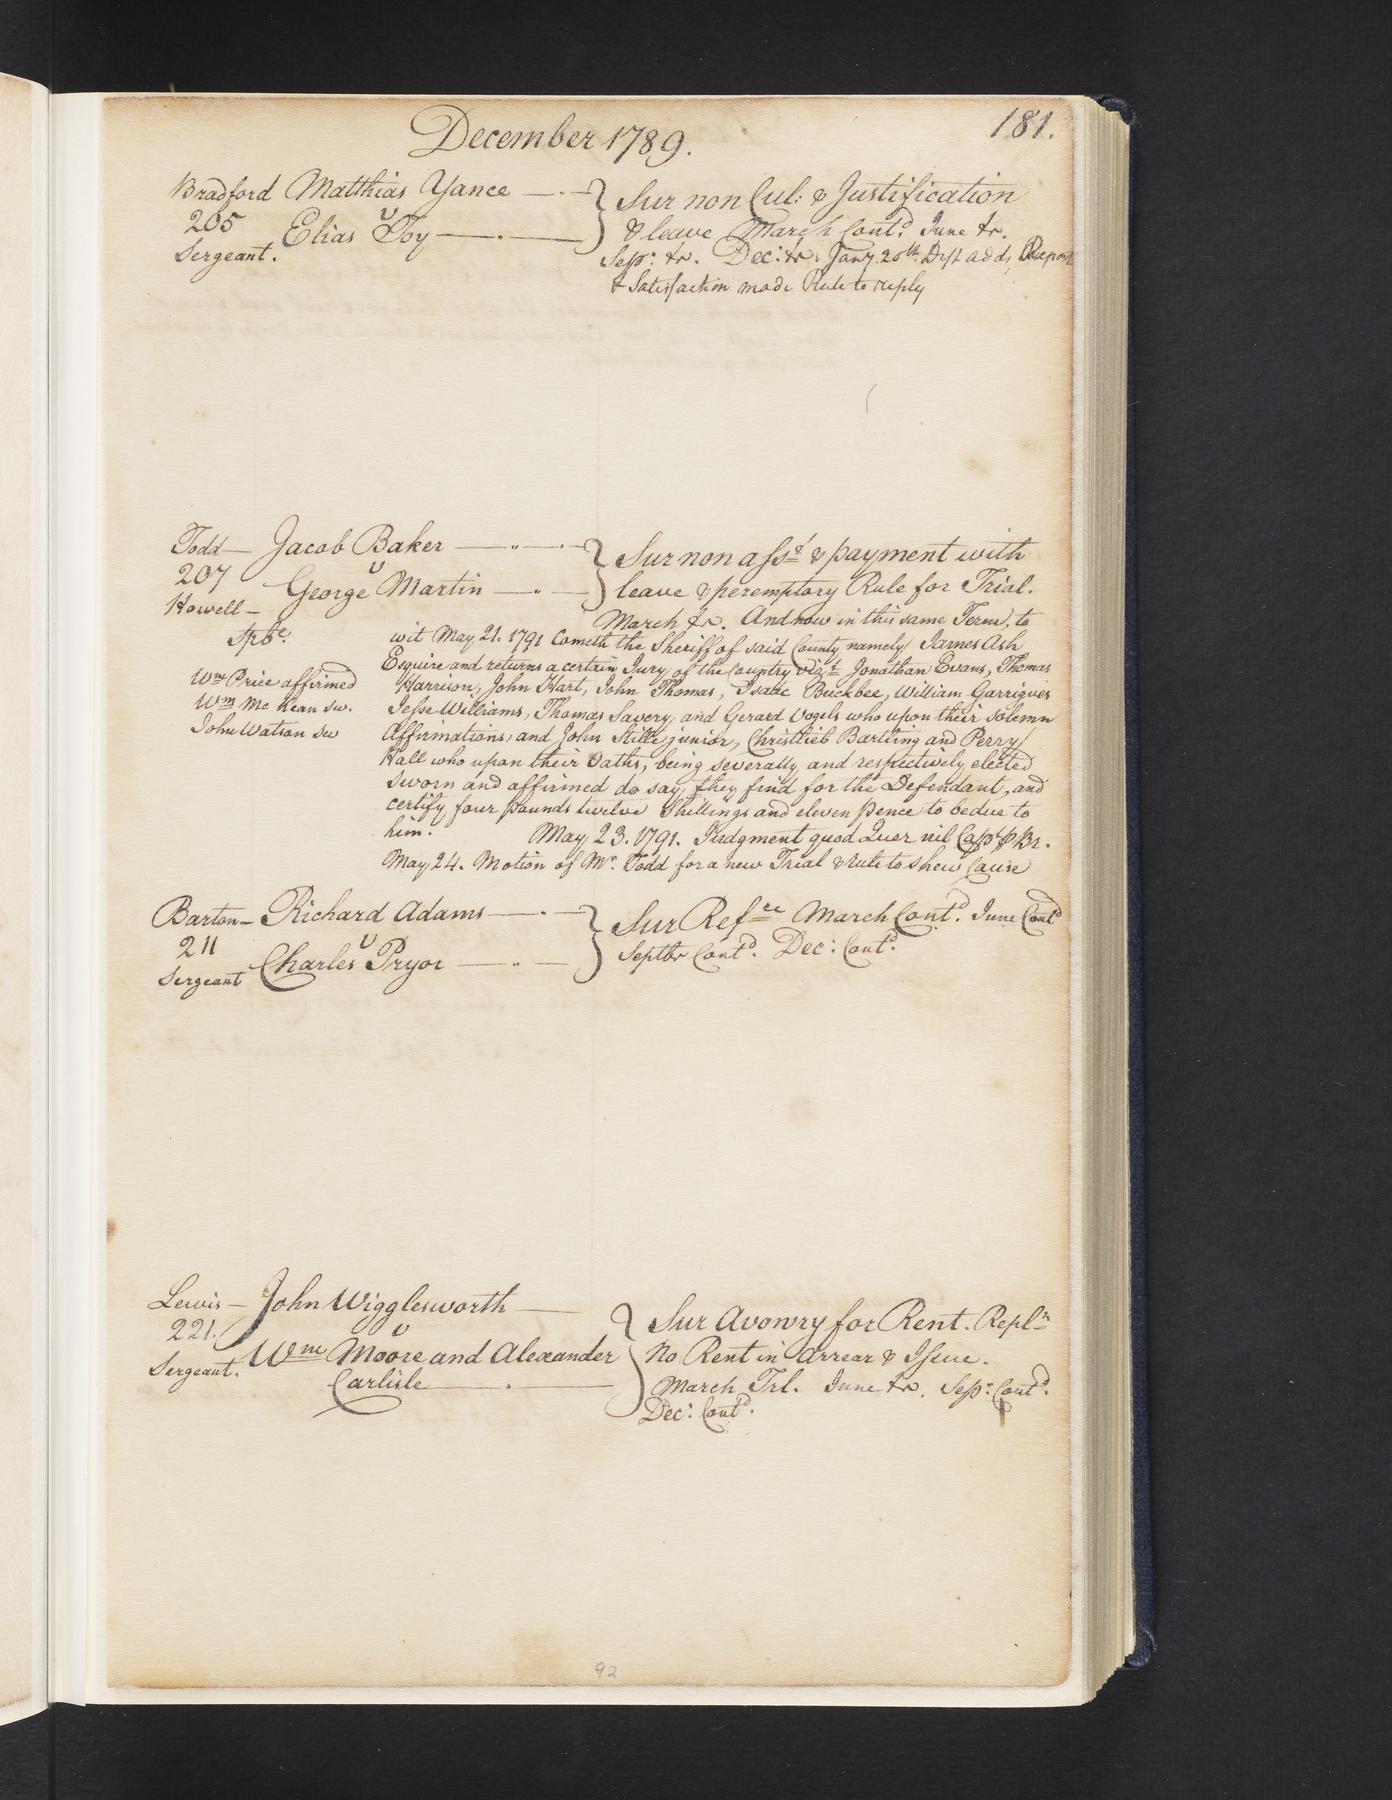 December 1789.
181.
Bradford Matthias Yance
205
v
Elias Toy
Sergeant.
Sur non Cul: & Justification
& leave March Cont.d June tr.
Sepr. tr. Dec: tr. Jany. 20th. Deft adds,
& Satisfaction made Rule to reply
Todd— Jacob Baker
207
v
George Martin
Howell—
Sur non assd & payment with
leave & peremptory Rule for Trial.
March tr. And now in this same Term, to
wit May 21. 1791 Cometh the Sheriff of said County namely James Ash
Esquire and returns a certain Jury of the Country vizt Jonathan Evans, Thomas
Harrison, John Hart, John Thomas, Isaac Buckbee, William Garrigues
Jesse Williams, Thomas Savery, and Gerard Vogels who upon their solemn
Affirmations, and John Stille junior, Christlieb Bartling and Perry
Hall who upon their Oaths, being severally and respectively elected
sworn and affirmed do say, they find for the Defendant, and
certify four pounds twelve Shillings and eleven pence to be due to
him. May 23. 1791. Judgment quod Quer nil Capt p Br.
May 24. Motion of Mr. Todd for a new Trial & Rule to shew Cause
Wm Price affirmed
Wm Mc Kean sw.
John Watson sw
Barton— Richard Adams
211
v
Charles Pryor
Sergeant
Sur Refce March Contd. June Contd
Septbr Contd. Dec: Contd.
Lewis— John Wigglesworth
221.
v
Wm Moore and Alexander
Sergeant.
Carlisle
Sur Avowry for Rent. Repln
No Rent in Arrear & Issue.
March Trl. June tr. Sepr. Contd.
Dec: Contd.
92